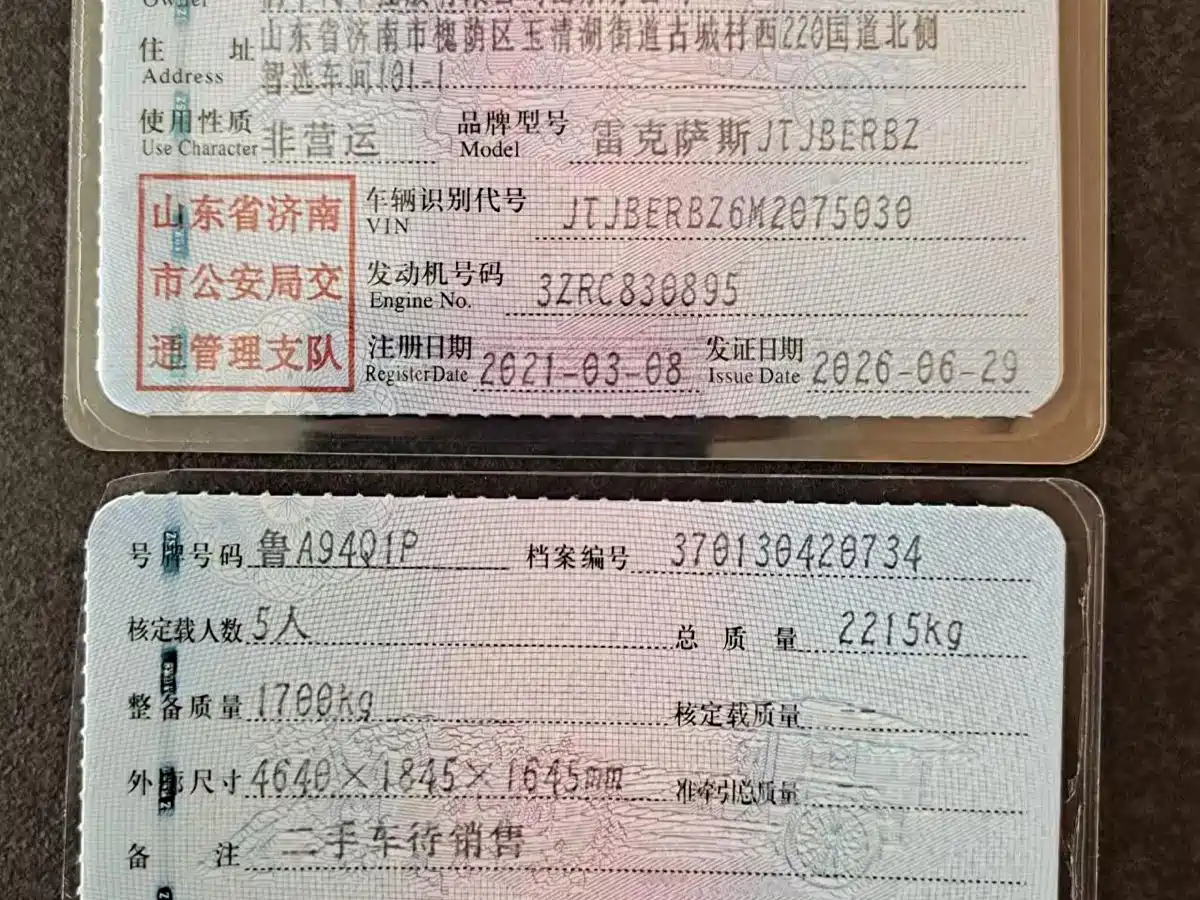 Owner
住 址 山东省济南市槐荫区玉清湖街道古城村西220国道北侧
Address 智选车间101-1
使用性质 非营运 品牌型号 雷克萨斯JTJBERBZ
Use Character Model
山东省济南
市公安局交
通管理支队
车辆识别代号 JTJBERBZ6M2075030
VIN
发动机号码 3ZRC830895
Engine No.
注册日期 2021-03-08 发证日期 2026-06-29
Register Date Issue Date
号牌号码 鲁A94Q1P 档案编号 370130420734
核定载人数 5人 总质量 2215kg
整备质量 1700kg 核定载质量 --
外廓尺寸 4640×1845×1645mm 准牵引总质量 --
备 注 二手车待销售